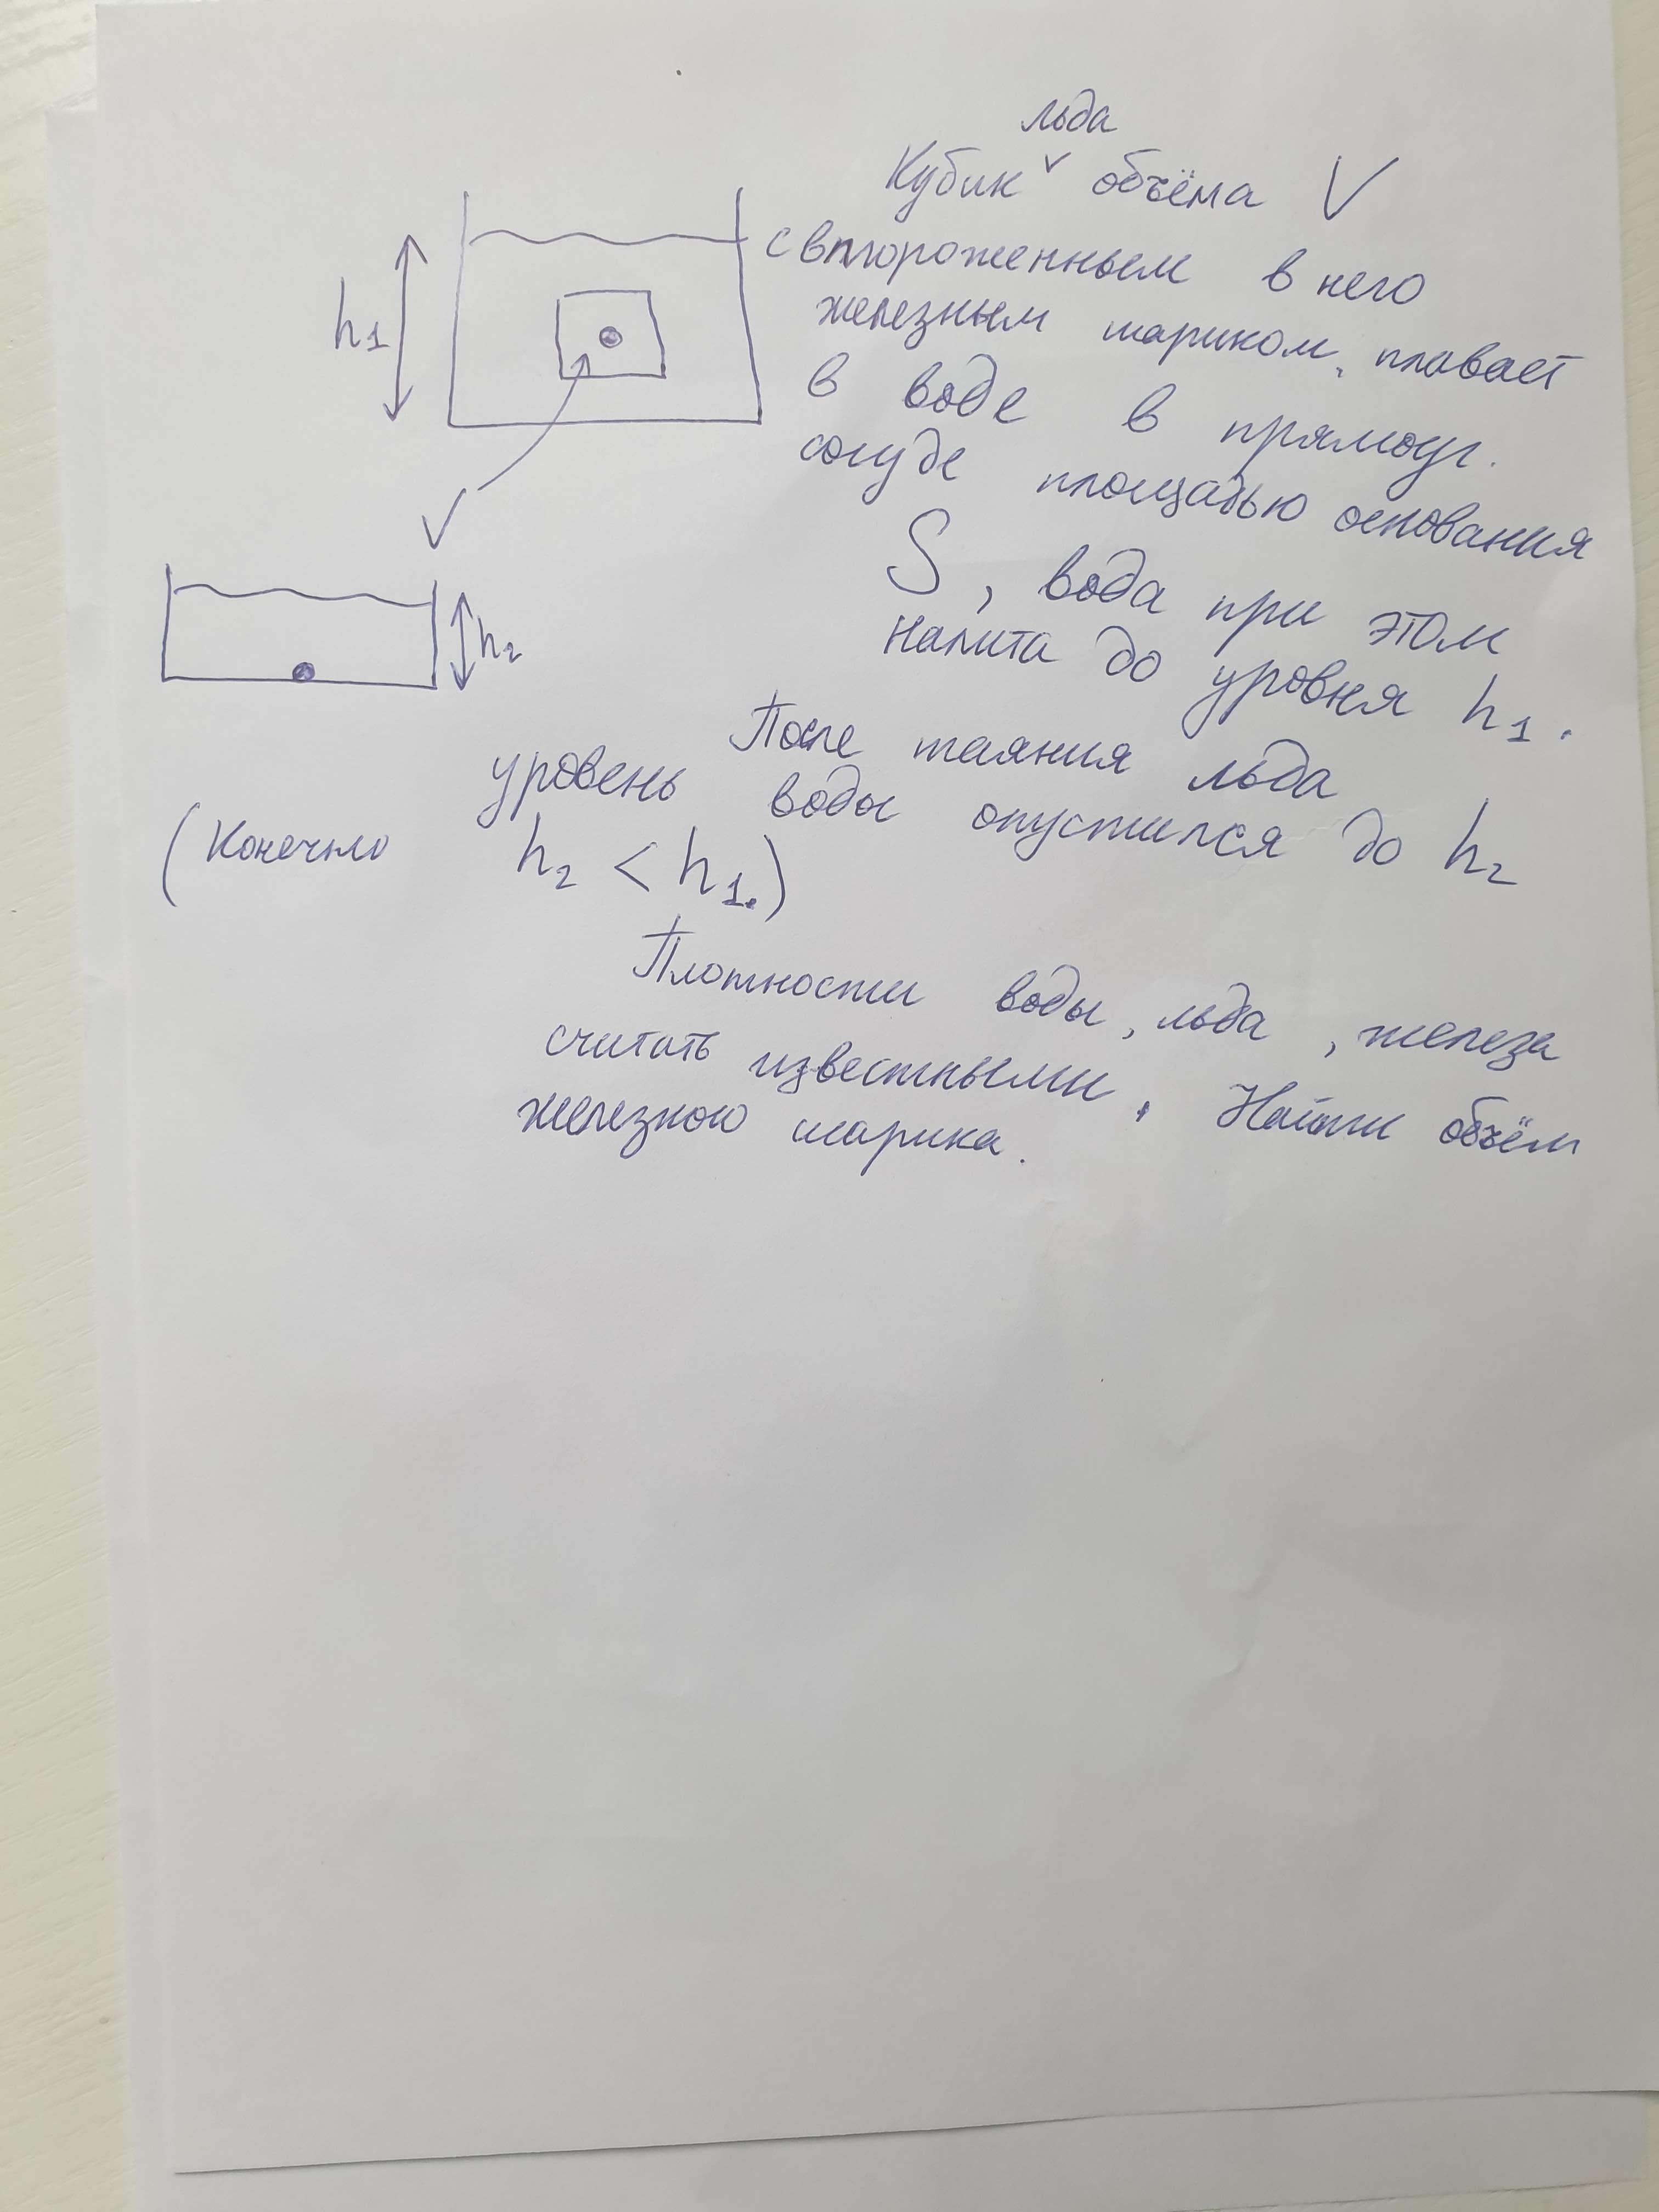 льда
Кубик ˅ объёма V
с вмороженным в него
железным шариком, плавает
в воде в прямоуг.
сосуде площадью основания
S, вода при этом
налита до уровня h1.
После таяния льда
уровень воды опустился до h2
(Конечно h2 < h1.)
Плотности воды, льда, железа
считать известными. Найти объём
железного шарика.
h1
V
h2